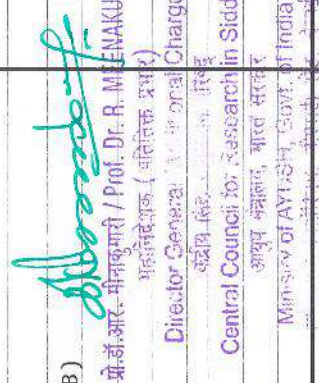 B)
प्रो.डॉ.आर. मीनाकुमारी / Prof. Dr. R. MEENAKU
महानिदेशक (अतिरिक्त प्रभार)
Director General Charge
Central Council for Research in Sidd
आयुष मंत्रालय, भारत सरकार
Ministry of AYUSH, Govt. of India